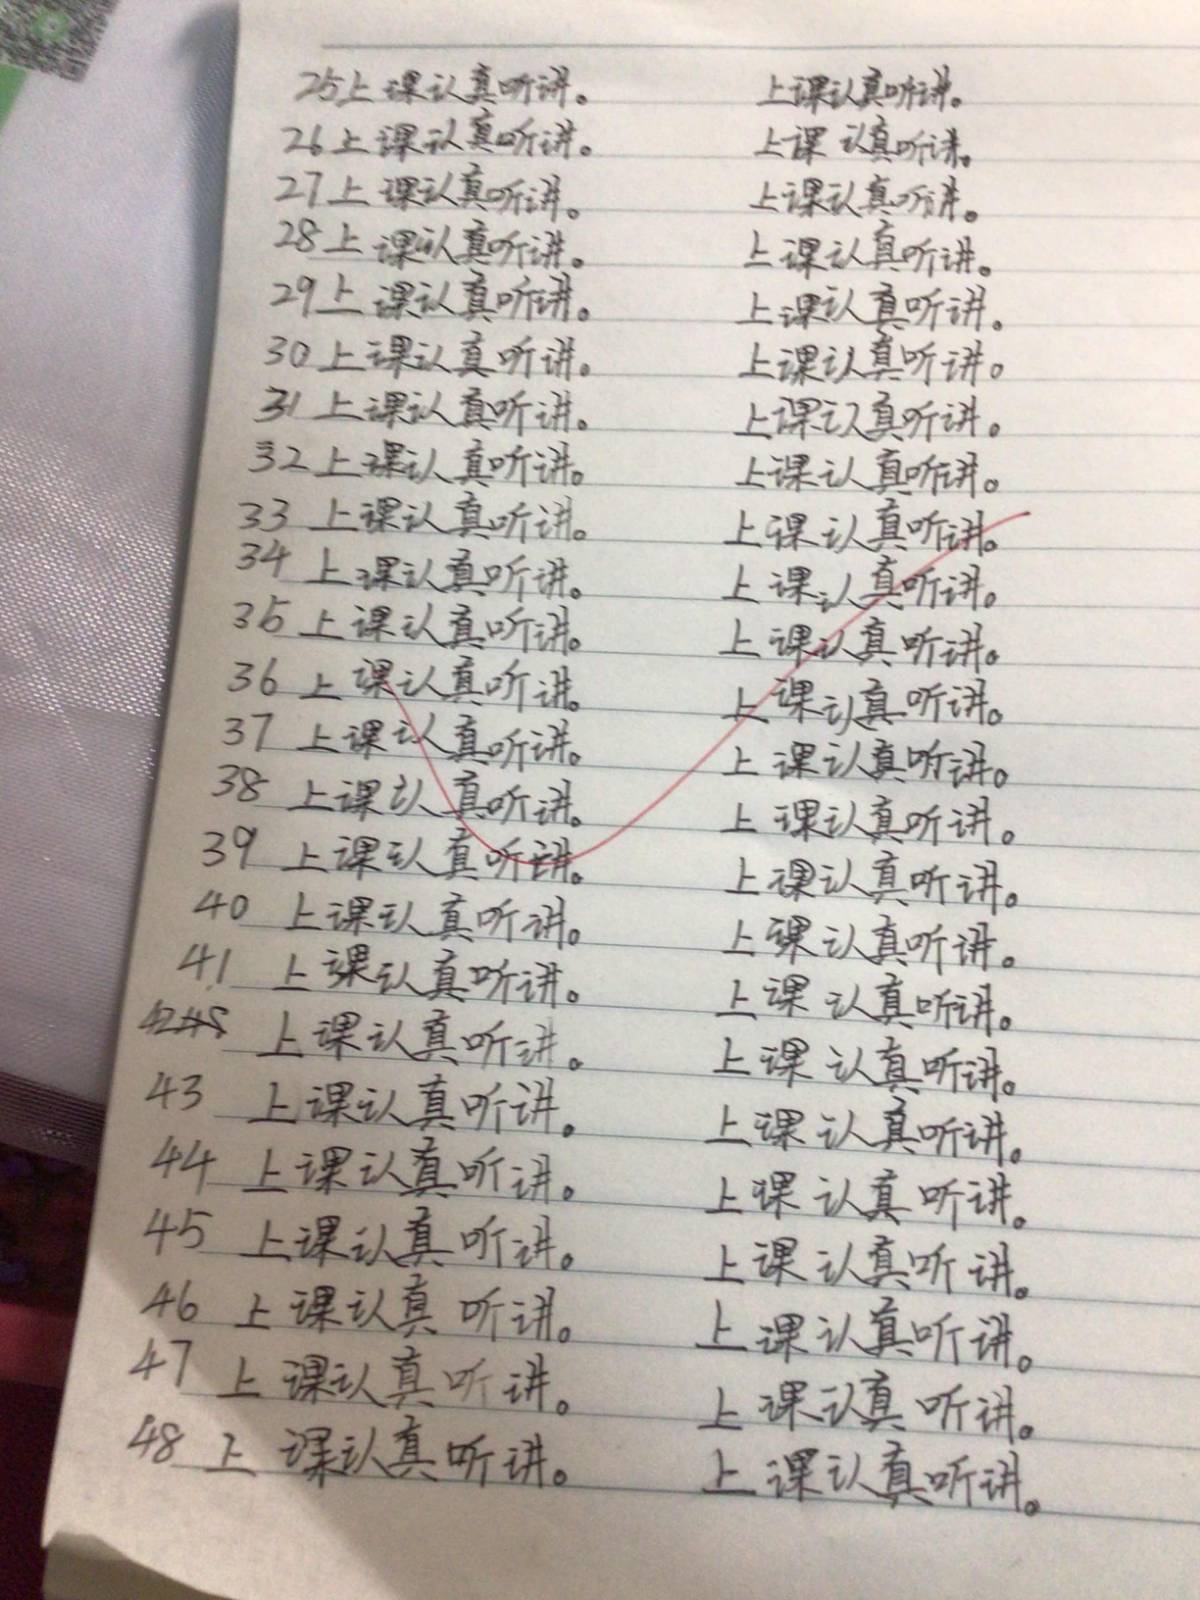 25上课认真听讲。 上课认真听讲。
26上课认真听讲。 上课认真听讲。
27上课认真听讲。 上课认真听讲。
28上课认真听讲。 上课认真听讲。
29上课认真听讲。 上课认真听讲。
30上课认真听讲。 上课认真听讲。
31上课认真听讲。 上课认真听讲。
32上课认真听讲。 上课认真听讲。
33上课认真听讲。 上课认真听讲。
34上课认真听讲。 上课认真听讲。
35上课认真听讲。 上课认真听讲。
36上课认真听讲。 上课认真听讲。
37上课认真听讲。 上课认真听讲。
38上课认真听讲。 上课认真听讲。
39上课认真听讲。 上课认真听讲。
40上课认真听讲。 上课认真听讲。
41上课认真听讲。 上课认真听讲。
42上课认真听讲。 上课认真听讲。
43上课认真听讲。 上课认真听讲。
44上课认真听讲。 上课认真听讲。
45上课认真听讲。 上课认真听讲。
46上课认真听讲。 上课认真听讲。
47上课认真听讲。 上课认真听讲。
48上课认真听讲。 上课认真听讲。